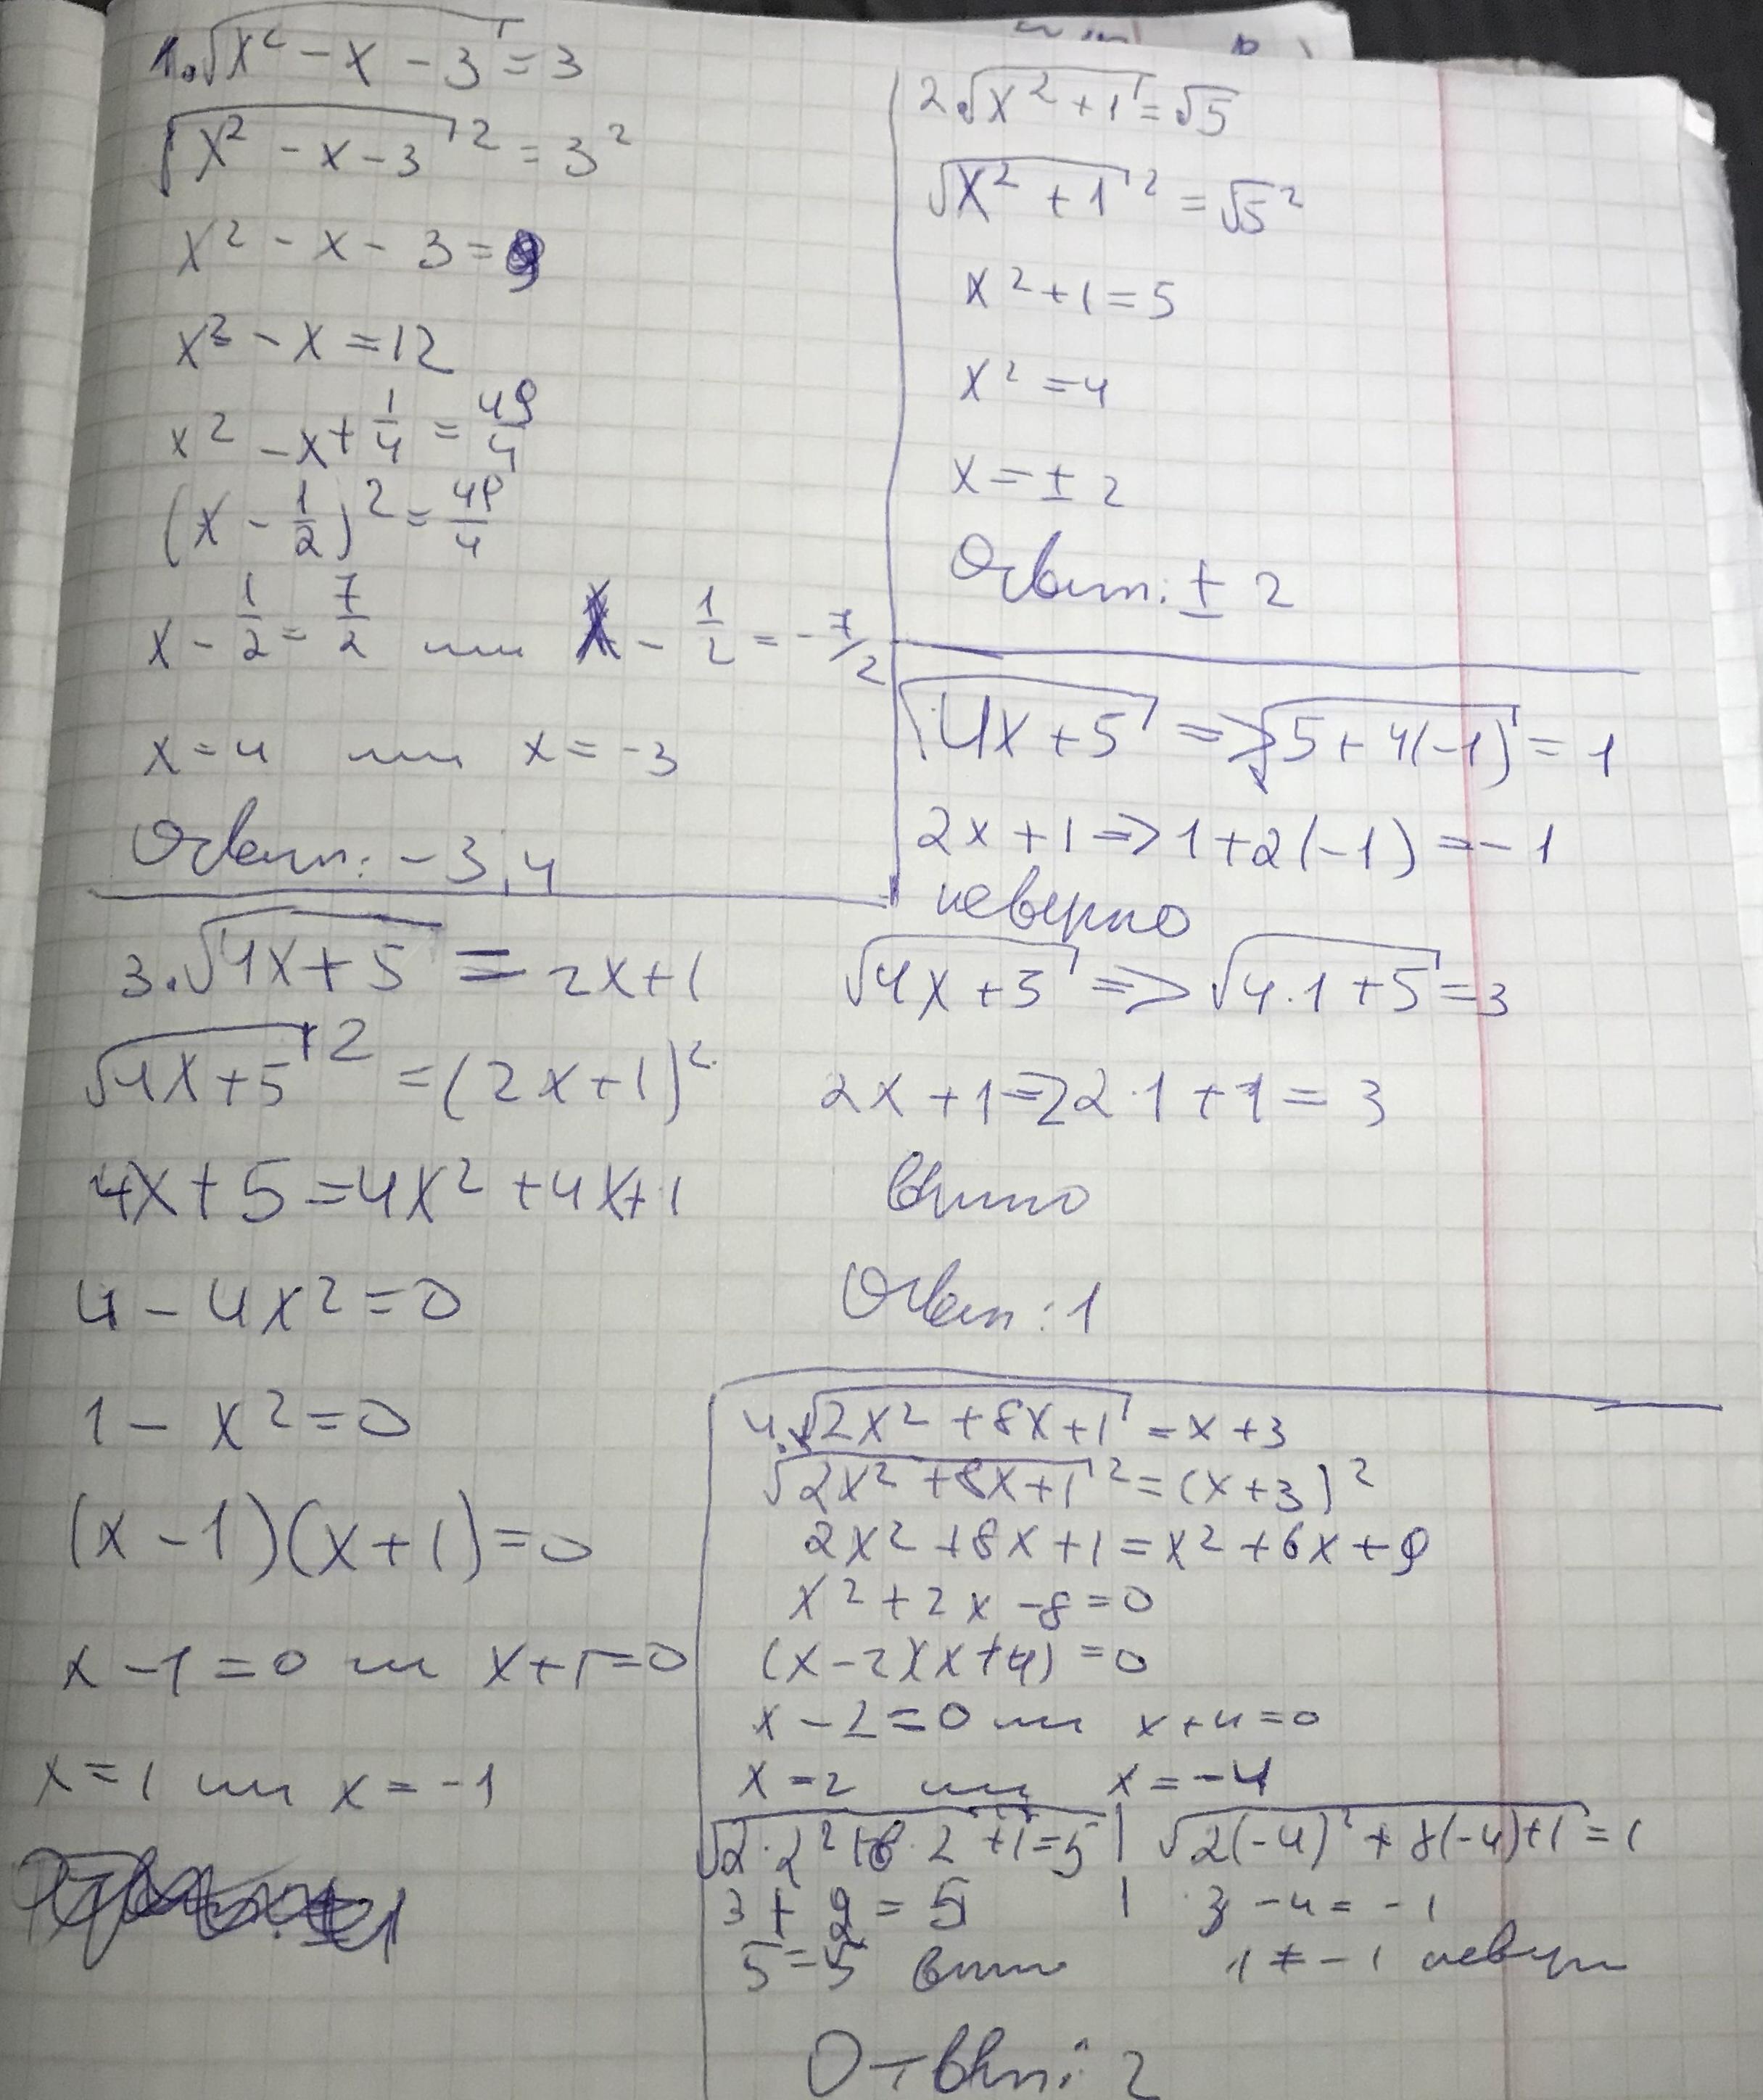 1. √(x² - x - 3) = 3
√(x² - x - 3)² = 3²
x² - x - 3 = 9
x² - x = 12
x² - x + 1/4 = 49/4
(x - 1/2)² = 49/4
x - 1/2 = 7/2 или x - 1/2 = -7/2
x = 4 или x = -3
Ответ: -3, 4
2. √(x² + 1) = √5
√(x² + 1)² = √5²
x² + 1 = 5
x² = 4
x = ± 2
Ответ: ± 2
3. √(4x + 5) = 2x + 1
√(4x + 5)² = (2x + 1)²
4x + 5 = 4x² + 4x + 1
4 - 4x² = 0
1 - x² = 0
(x - 1)(x + 1) = 0
x - 1 = 0 или x + 1 = 0
x = 1 или x = -1
√(4x + 5) => √(5 + 4(-1)) = 1
2x + 1 => 1 + 2(-1) = -1
неверно
√(4x + 5) => √(4·1 + 5) = 3
2x + 1 => 2·1 + 1 = 3
верно
Ответ: 1
4. √(2x² + 8x + 1) = x + 3
√(2x² + 8x + 1)² = (x + 3)²
2x² + 8x + 1 = x² + 6x + 9
x² + 2x - 8 = 0
(x - 2)(x + 4) = 0
x - 2 = 0 или x + 4 = 0
x = 2 или x = -4
√(2·2² + 8·2 + 1) = 5 | √(2(-4)² + 8(-4) + 1) = 1
3 + 2 = 5 | 3 - 4 = -1
5 = 5 верно 1 ≠ -1 неверн
Ответ: 2